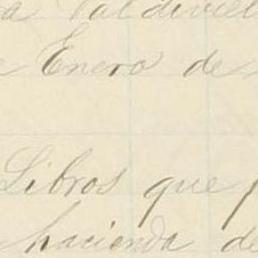 a Valdiviel
e Enero de
Libros que p
hacienda de